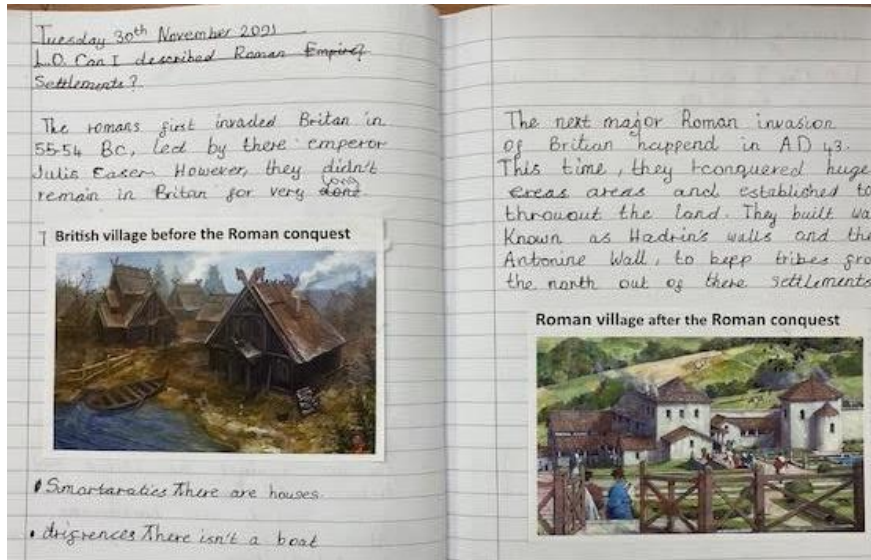 Tuesday 30th November 2021
L.O. Can I described Roman Empire?
Settlements?
The romans first invaded Britan in
55-54 BC, led by there emperor
Julis Easer. However, they didn't
remain in Britan for very long
British village before the Roman conquest
• Smartaratics There are houses.
• drigrences There isn't a boat
The next major Roman invasion
of Britian happend in AD 43.
This time, they conquered huge
ereas areas and established to
throuout the land. They built wa
Known as Hadrin's walls and the
Antonine Wall, to kepp tribes fro
the north out of there settlements
Roman village after the Roman conquest